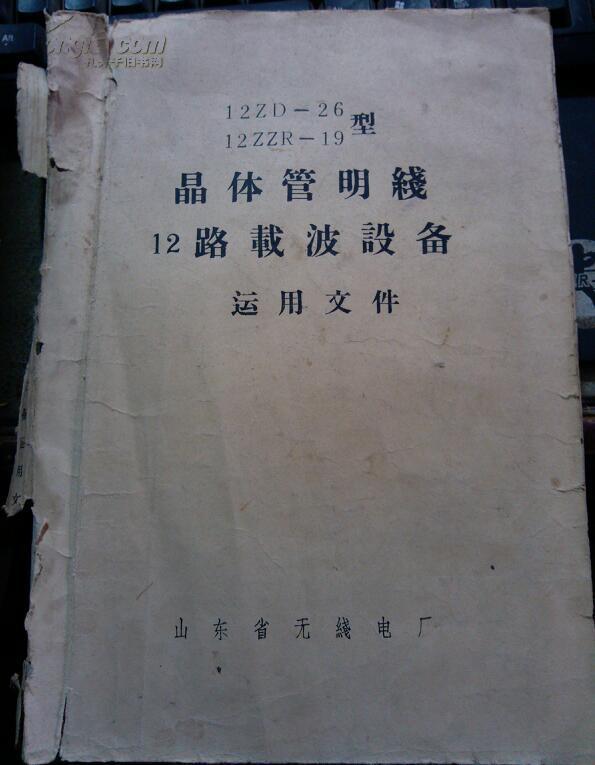 12ZD-26
12ZZR-19 型
晶体管明綫
12路載波設备
运用文件
山东省无綫电厂
运
用
文
孔夫子旧书网